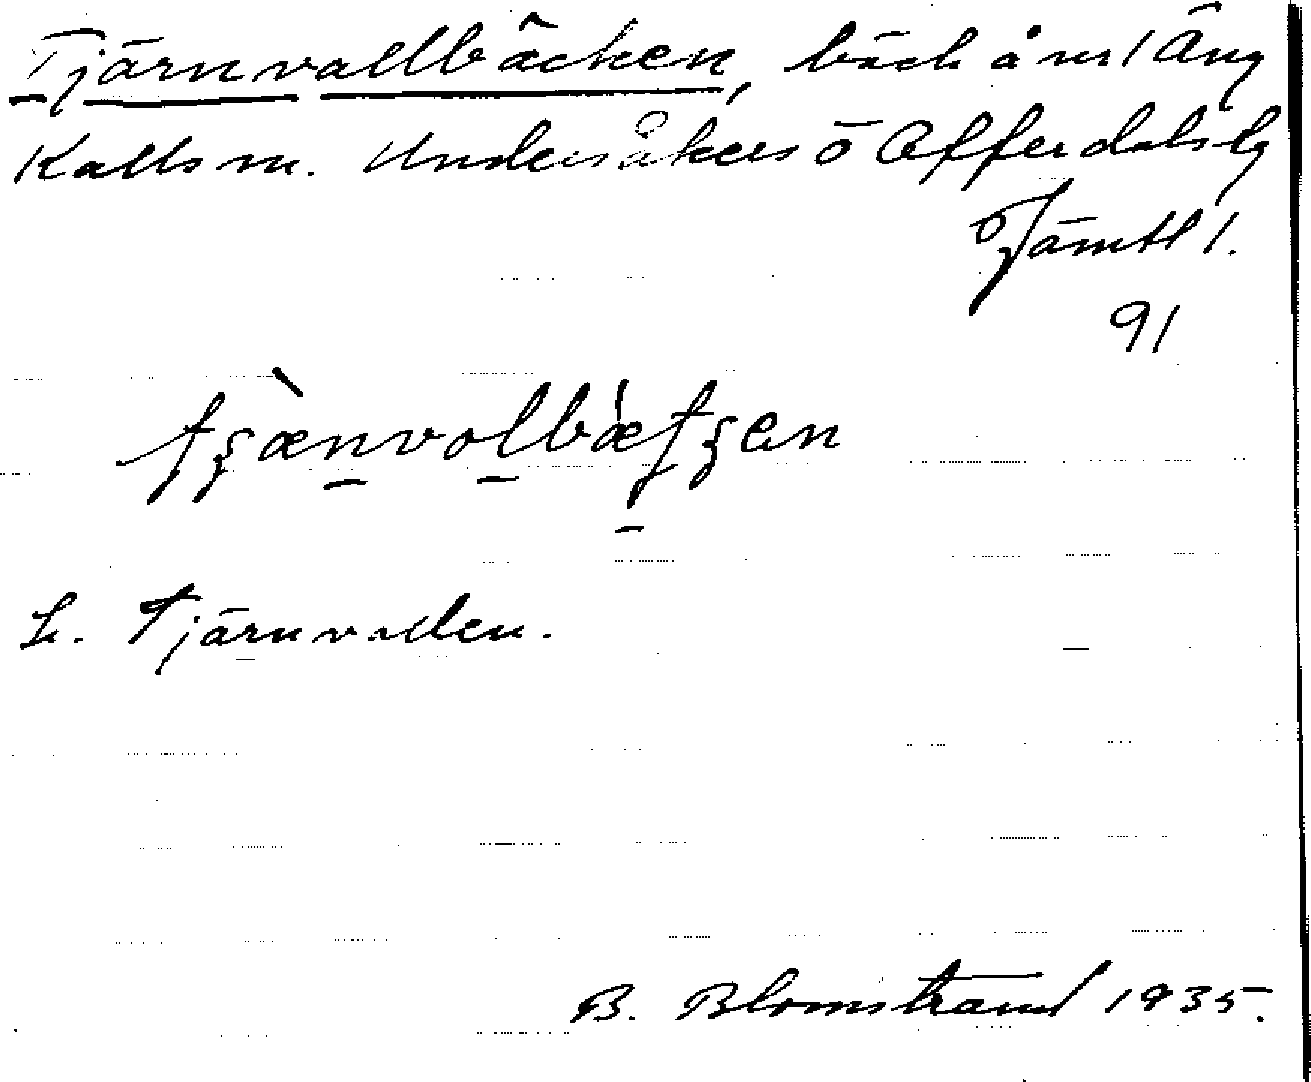 Tjärnvallbäcken, bäck å nr 1 Äng
Kalls sn. Undersåkers o Offerdals tg
Jämtl l.
91
tʂænvolbætʂen
L. Tjärnvallen.
B. Blomstrand 1935.